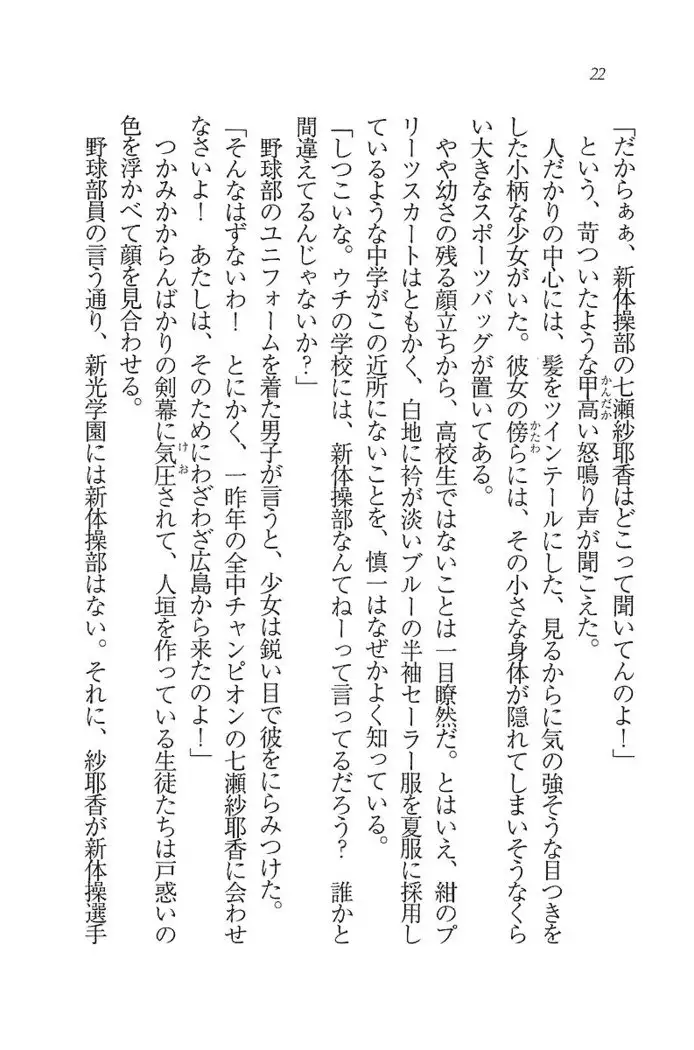 22
「だからぁぁ、新体操部の七瀬紗耶香はどこって聞いてんのよ！」
という、苛ついたような甲高い怒鳴り声が聞こえた。
かんだか
人だかりの中心には、髪をツインテールにした、見るからに気の強そうな目つきを
した小柄な少女がいた。彼女の傍らには、その小さな身体が隠れてしまいそうなくら
かたわ
い大きなスポーツバッグが置いてある。
やや幼さの残る顔立ちから、高校生ではないことは一目瞭然だ。とはいえ、紺のプ
リーツスカートはともかく、白地に衿が淡いブルーの半袖セーラー服を夏服に採用し
ているような中学がこの近所にないことを、慎一はなぜかよく知っている。
「しつこいな。ウチの学校には、新体操部なんてねーって言ってるだろう？　誰かと
間違えてるんじゃないか？」
野球部のユニフォームを着た男子が言うと、少女は鋭い目で彼をにらみつけた。
「そんなはずないわ！　とにかく、一昨年の全中チャンピオンの七瀬紗耶香に会わせ
なさいよ！　あたしは、そのためにわざわざ広島から来たのよ！」
つかみかからんばかりの剣幕に気圧されて、人垣を作っている生徒たちは戸惑いの
けお
色を浮かべて顔を見合わせる。
野球部員の言う通り、新光学園には新体操部はない。それに、紗耶香が新体操選手